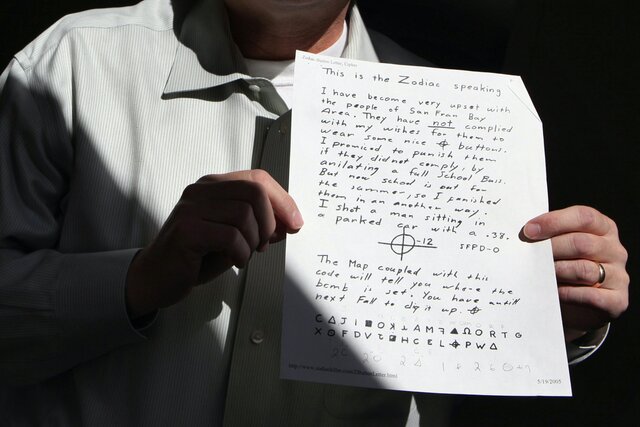 Zodiac Button Letter, Cipher
This is the Zodiac speaking
I have become very upset with
the people of San Fran Bay
Area. They have not complied
with my wishes for them to
wear some nice ⌖ buttons.
I promiced to punish them
if they did not comply, by
anilating a full School Buss.
But now school is out for
the summer, so I punished
them in an another way.
I shot a man sitting in
a parked car with a .38.
⌖-12 SFPD-0
The Map coupled with this
code will tell you where the
bomb is set. You have untill
next Fall to dig it up. ⌖
C Δ J I ■ O ꓘ ⅄ A M ꟻ ▲ Ω O R T G
X ⊙ F D V ⟊ ◪ H C E L ⌖ P W Δ
5/19/2005